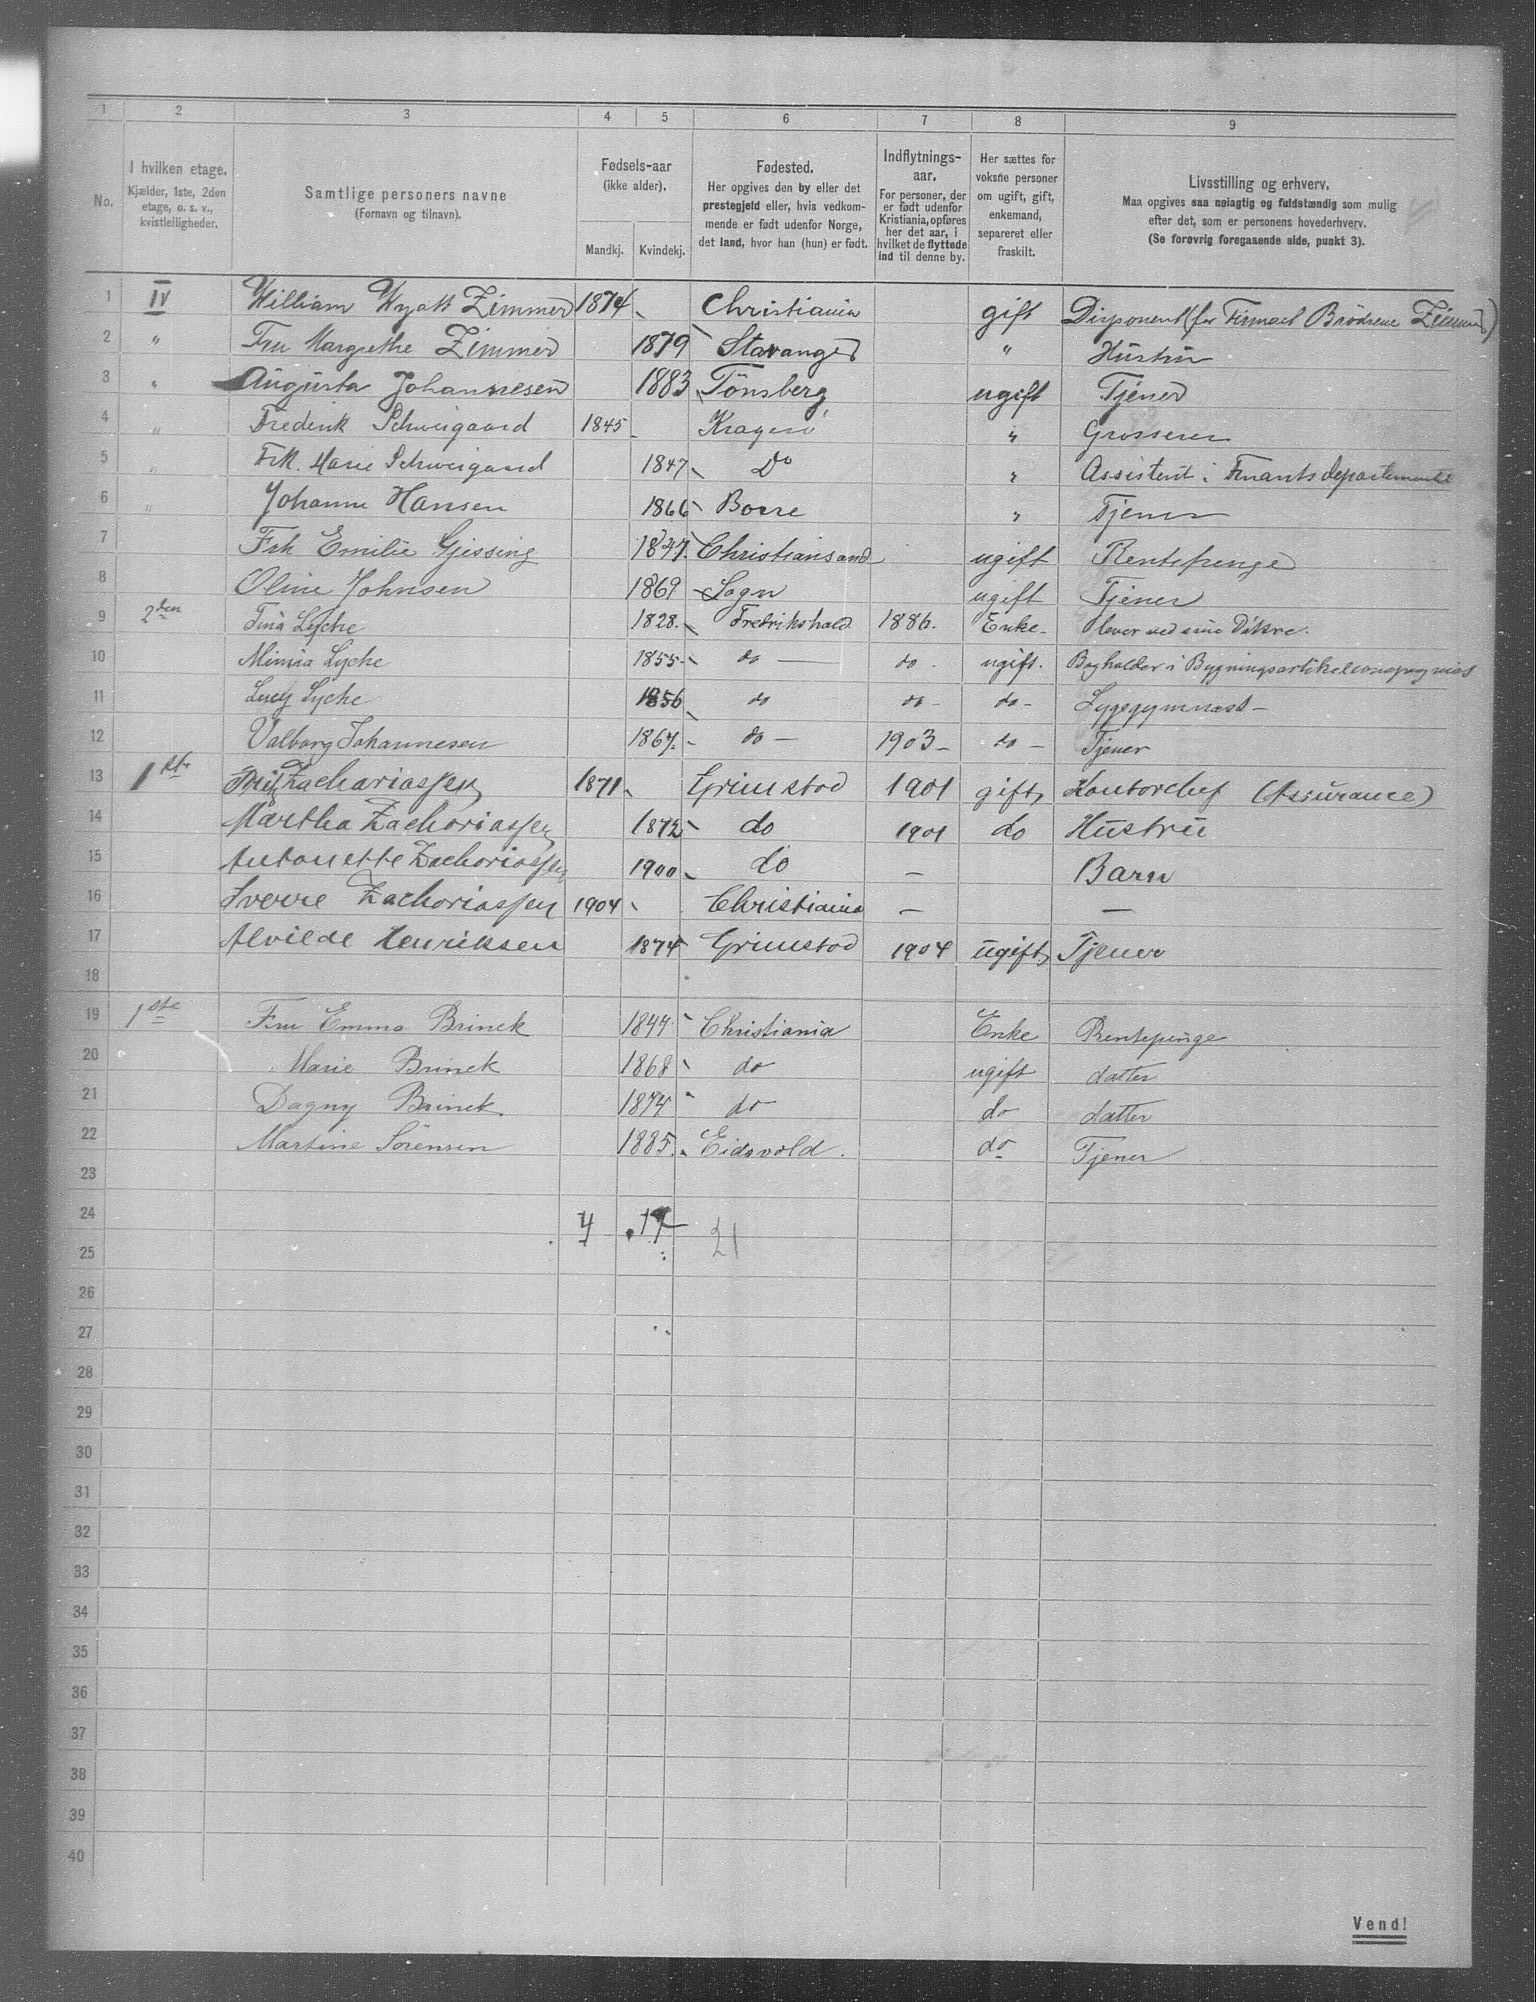 1 2 3 4 5 6 7 8 9
No.
I hvilken etage.
Kjælder, 1ste, 2den
etage, o. s. v.,
kvistleiligheder.
Samtlige personers navne
(Fornavn og tilnavn).
Fødsels-aar
(ikke alder).
Mandkj. Kvindekj.
Fødested.
Her opgives den by eller det
prestegjeld eller, hvis vedkom-
mende er født udenfor Norge,
det land, hvor han (hun) er født.
Indflytnings-
aar.
For personer, der
er født udenfor
Kristiania, opføres
her det aar, i
hvilket de flyttede
ind til denne by.
Her sættes for
voksne personer
om ugift, gift,
enkemand,
separeret eller
fraskilt.
Livsstilling og erhverv.
Maa opgives saa nøiagtig og fuldstændig som mulig
efter det, som er personens hovederhverv.
(Se forøvrig foregaaende side, punkt 3).
1 IV William Wyatt Zimmer 1874 Christiania gift Disponent (for Firmaet Brödrene Zimmer)
2 " Fru Margrethe Zimmer 1879 Stavanger " Hustru
3 " Augusta Johannesen 1883 Tönsberg ugift Tjener
4 " Frederik Schweigaard 1845 Kragerø " Grosserer
5 " Frk. Marie Schweigaard 1847 Do " Assistent i Finantsdepartementet
6 " Johanne Hansen 1866 Borre " Tjener
7 Frk Emilie Gjessing 1847 Christiansand ugift Rentepenge
8 Oline Johnsen 1869 Sogn ugift Tjener
9 2den Tina Lyche 1828. Fredrikshald 1886. Enke - lever ved sine Døtre.
10 Minna Lyche 1855 do — do - ugift. Bogholder i
11 Lucy Lyche 1856 do do - do - Sygegymnast -
12 Valborg Johannesen 1867. do — 1903 - do - Tjener
13 1ste Zachariassen 1871 Grimstad 1901 gift, Kontorchef (Assurance)
14 Martha Zachariassen 1872 do 1901 do Hustru
15 Antonette Zachariassen 1900 do — Barn
16 Sverre Zachariassen 1904 Christiania — —
17 Alvilde Henriksen 1874 Grimstad 1904 ugift, Tjener
18
19 1ste Fru Emma Brinck 1844 Christiania Enke Rentepenge
20 Marie Brinck 1868 do ugift datter
21 Dagny Brinck 1874 do do datter
22 Martine Sörensen 1885. Eidsvold. do Tjener
23
24 4 17 21
25
26
27
28
29
30
31
32
33
34
35
36
37
38
39
40
Vend!